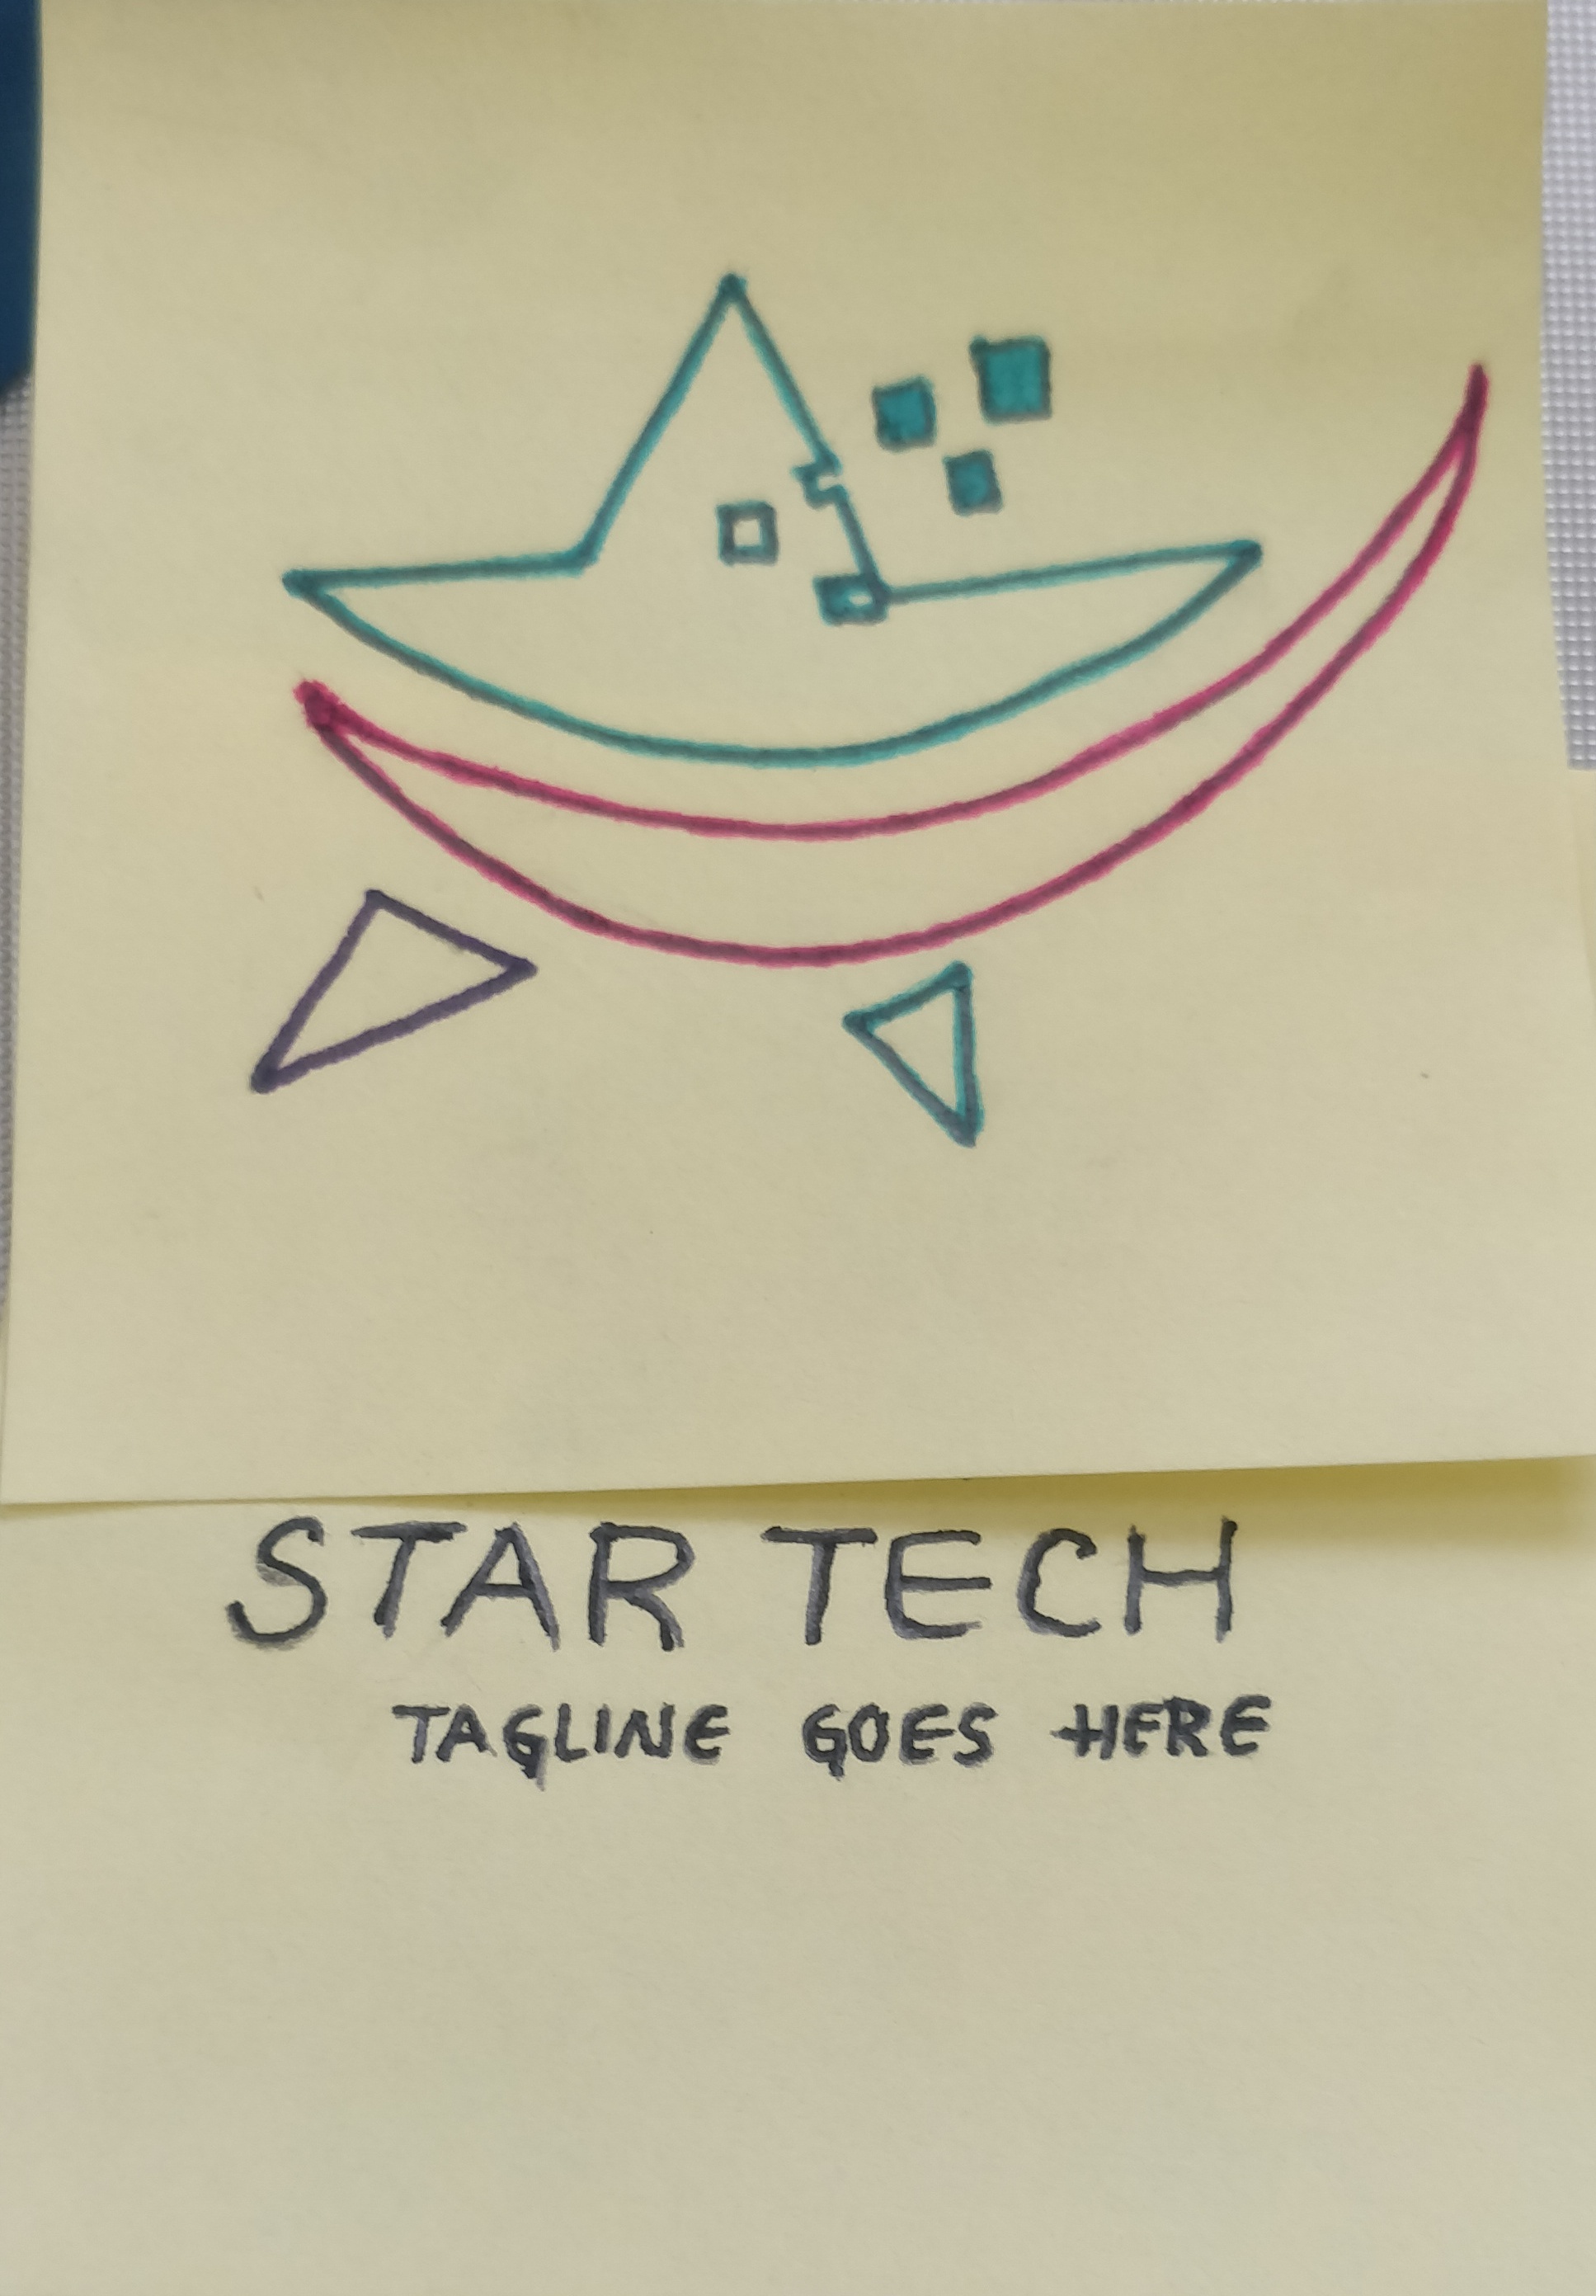 STAR TECH
TAGLINE GOES HERE